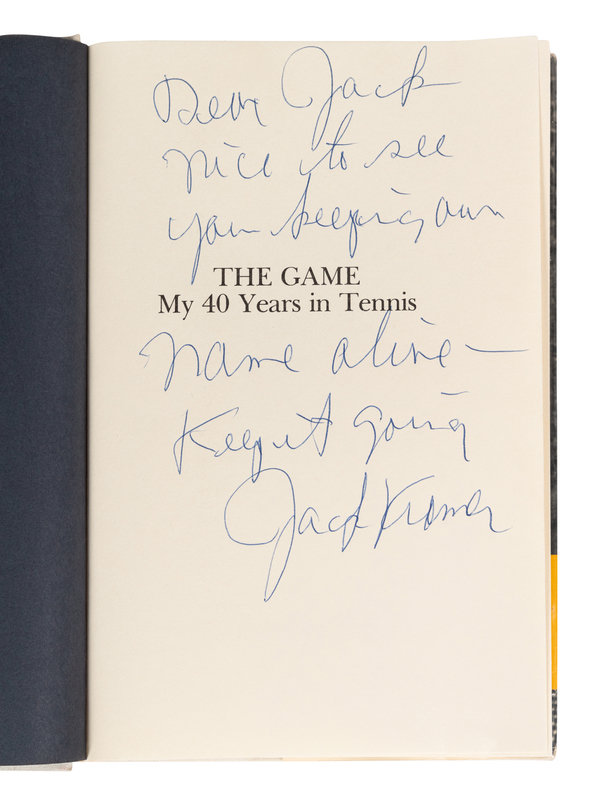 Dear Jack
nice to see
your keeping our
THE GAME
My 40 Years in Tennis
name alive —
Keep it going
Jack Kramer